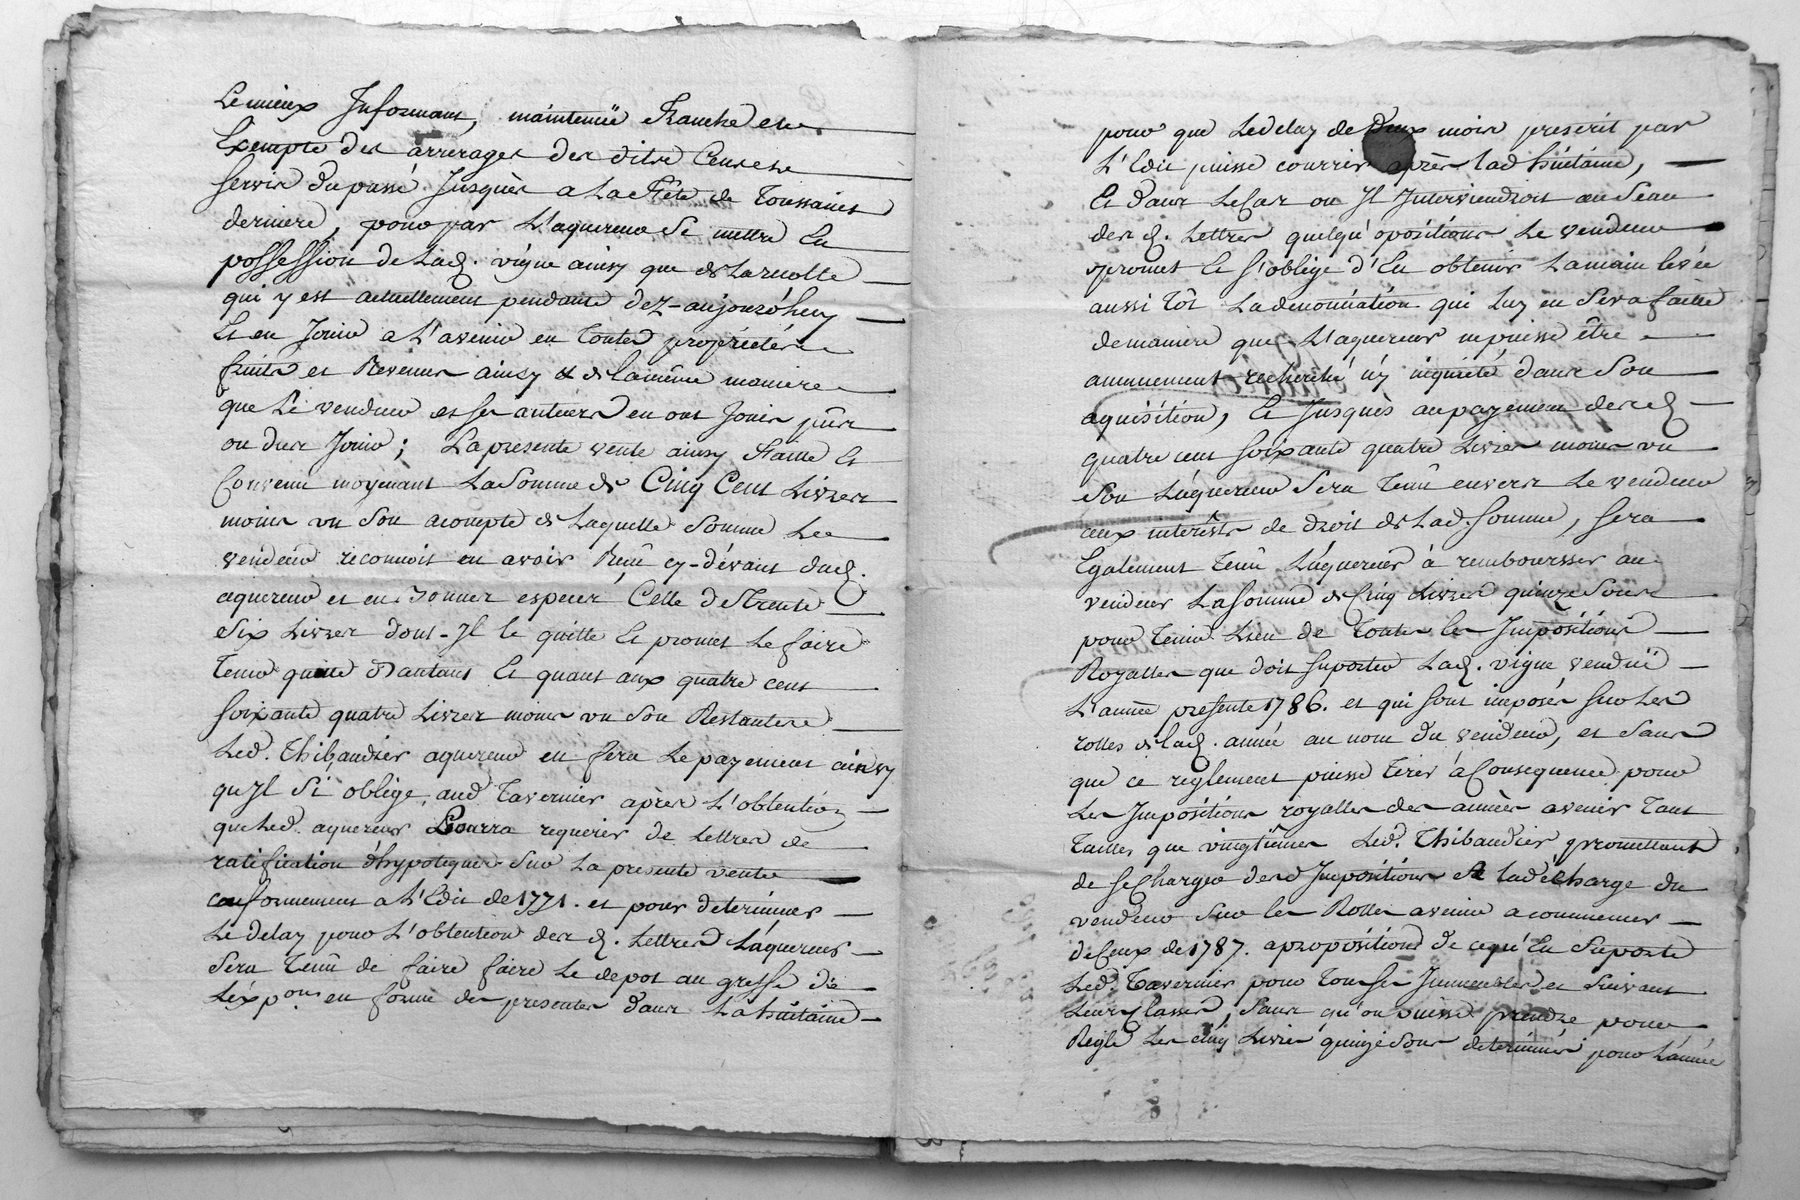 Le mieux Informant, maintenüe Franche et
Exempte des arrerages des dits Cens et
servis du passé Jusques a La Fête de Toussaint
derniere, pour par L'aquereur se mettre En
possession de Lad. vigne ainsy que de La recolte
qui y est actuellement pendante dez-aujourd'huy
Et en Jouir a L'avenir en toutes proprietés
fruits et Revenus ainsy & de la même maniere
que Le vendeur et ses auteurs en ont Joui pûs
ou dus Jouir; La presente vente ainsy Faitte Et
Convenue moyenant La Somme de Cinq Cent Livres
moins un Sou acompte de Laquelle Somme Le
vendeur reconnoit en avoir Reçu cy-dévant dud.
aquereur et en Bonnes especes Celle de Trente
Six Livres dont-Il le quitte Et promet Le faire
Tenir quitte D'autant Et quant aux quatre cent
soixante quatre Livres moins un Sou Restantes
Led. Thibaudier aquereur en fera Le payement ainsy
qu'Il Si oblige, aud Tavernier après L'obtention
que Led. aquereur Pourra requerir de Lettres de
ratification d'hypoteques Sur La presente vente
conformement a L'Edit de 1771. et pour determiner
Le delay pour L'obtention desd. Lettres L'aquereur
Sera Tenû de faire faire Le depot au greffe de
L'expon en forme des presentes dans La huitaine
pour que Le delay de Deux mois prescrit par
L'Edit puisse courrir après lad huitaine,
Et Dans Le Cas ou Il Interviendroit au Seau
desd. Lettres quelqu'opositions Le vendeur
promet Et s'oblige d'En obtenir La main levée
aussi tôt La denonciation qui luy en Sera faitte
de maniere que L'aquereur ne puisse être
aucunement recherché n'y inquiété dans Son
aquisition, Et Jusques au payement desd
quatre cent soixante quatre Livres moins un
Sou L'aquereur Sera Tenû envers Le vendeur
aux interêts de droit de Lad. Somme, sera
Egalement Tenû L'aquereur à remboursser au
vendeur La Somme de Cinq Livres quinze Sous
pour Tenir Lieu de Toutes les Impositions
Royalles que doit suporter Lad. vigne vendüe
L'année presente 1786. et qui sont imposés sur Les
rolles de lad. année au nom du vendeur, et Sans
que ce reglement puisse tirer à Consequence pour
Les Impositions royalles des années avenir Tant
Tailles que vingtiemes Led. Thibaudier promettant
de se Charger desd Impositions A la décharge du
vendeur Sur les Rolles avenir a commencer
de Ceux de 1787. a proposition de ce qu'En Suporte
Led. Tavernier pour Tous Ses Immeubles et Suivant
Leurs Classes, Sans qu'on puisse prendre pour
Regle Les cinq Livres quinze Sous determinés pour L'année